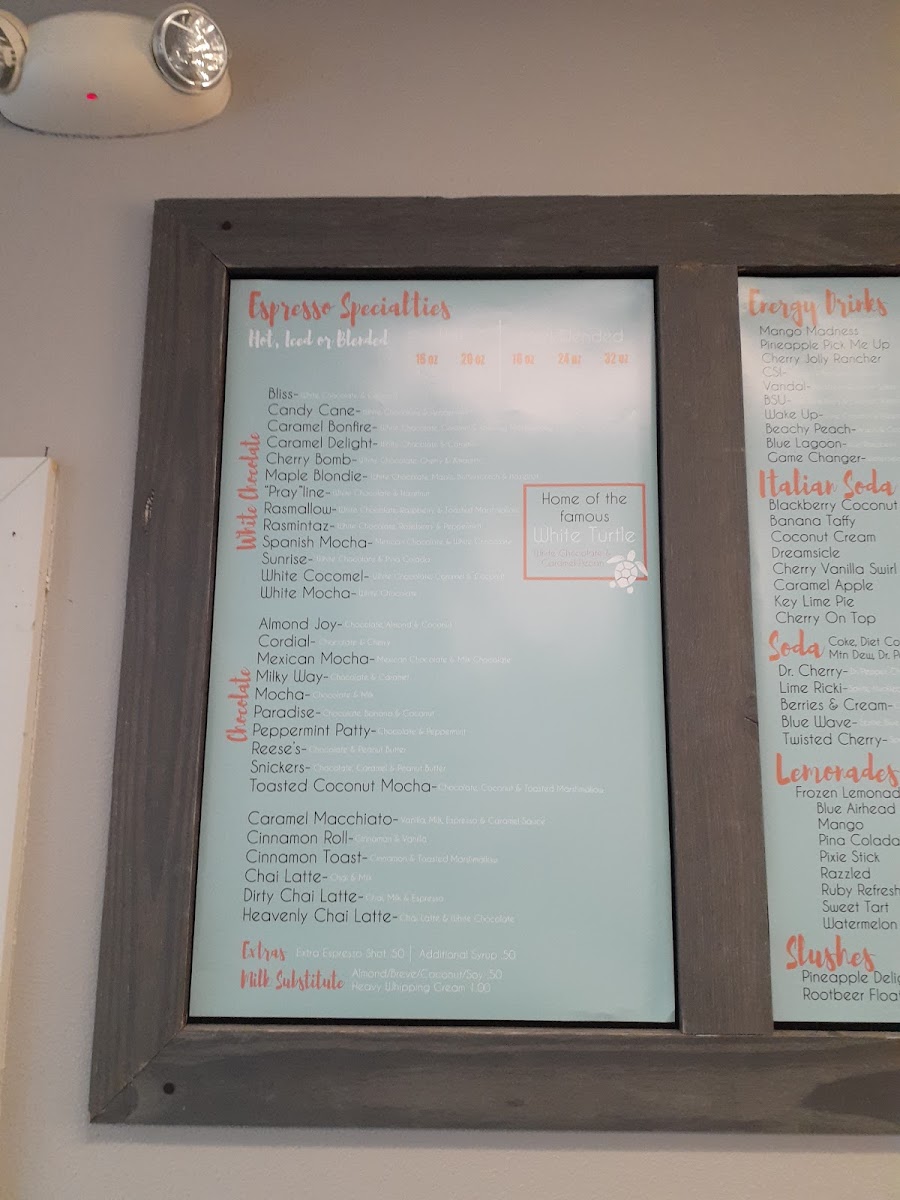 Espresso Specialties
Hot, Iced or Blended
Blended
16 oz 20 oz 16 oz 24 oz 32 oz
White Chocolate
Bliss- White Chocolate &
Candy Cane- White Chocolate & Peppermint
Caramel Bonfire- White Chocolate, Caramel &
Caramel Delight- White Chocolate & Caramel
Cherry Bomb- White Chocolate, Cherry & Almond
Maple Blondie- White Chocolate, Maple, Butterscotch &
"Pray"line- White Chocolate & Hazelnut
Rasmallow- White Chocolate, Raspberry & Toasted Marshmallow
Rasmintaz- White Chocolate, Raspberry & Peppermint
Spanish Mocha- Mexican Chocolate & White Chocolate
Sunrise- White Chocolate & Pina Colada
White Cocomel- White Chocolate, Caramel & Coconut
White Mocha- White Chocolate
Home of the
famous
White Turtle
White Chocolate &
Caramelicious
Chocolate
Almond Joy- Chocolate, Almond & Coconut
Cordial- Chocolate & Cherry
Mexican Mocha- Mexican Chocolate & Milk Chocolate
Milky Way- Chocolate & Caramel
Mocha- Chocolate & Milk
Paradise- Chocolate, Banana & Coconut
Peppermint Patty- Chocolate & Peppermint
Reese's- Chocolate & Peanut Butter
Snickers- Chocolate, Caramel & Peanut Butter
Toasted Coconut Mocha- Chocolate, Coconut & Toasted Marshmallow
Caramel Macchiato- Vanilla, Milk, Espresso & Caramel Sauce
Cinnamon Roll- Cinnamon & Vanilla
Cinnamon Toast- Cinnamon & Toasted Marshmallow
Chai Latte- Chai & Milk
Dirty Chai Latte- Chai, Milk & Espresso
Heavenly Chai Latte- Chai Latte & White Chocolate
Extras Extra Espresso Shot .50 | Additional Syrup .50
Milk Substitute Almond/Breve/Coconut/Soy .50
Heavy Whipping Cream 1.00
Energy Drinks
Mango Madness
Pineapple Pick Me Up
Cherry Jolly Rancher
CSI-
Vandal-
BSU-
Wake Up-
Beachy Peach-
Blue Lagoon-
Game Changer-
Italian Soda
Blackberry Coconut
Banana Taffy
Coconut Cream
Dreamsicle
Cherry Vanilla Swirl
Caramel Apple
Key Lime Pie
Cherry On Top
Soda Coke, Diet Co
Mtn Dew, Dr. P
Dr. Cherry-
Lime Ricki-
Berries & Cream-
Blue Wave-
Twisted Cherry-
Lemonades
Frozen Lemonad
Blue Airhead
Mango
Pina Colada
Pixie Stick
Razzled
Ruby Refresh
Sweet Tart
Watermelon
Slushes
Pineapple Delig
Rootbeer Floa